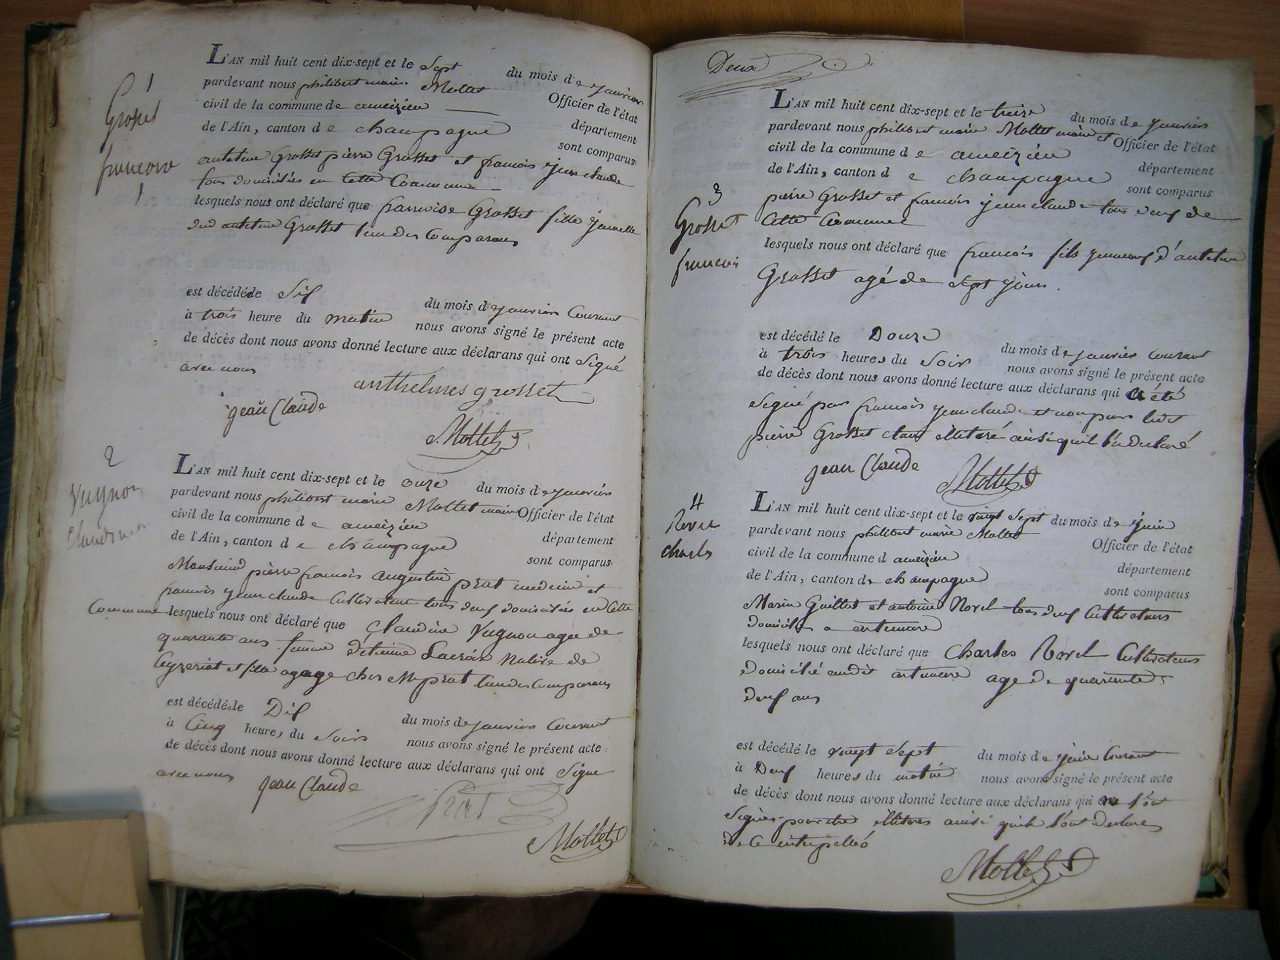 1
Grosset
françoise
L'AN mil huit cent dix-sept et le Sept du mois de janvier
pardevant nous philibert marie Mollet Officier de l'état
civil de la commune de ameizieu département
de l'Ain, canton de champagne sont comparus
antelme Grosset pierre Grosset et françois jean claude
tous domiciliés en Cette Commune
lesquels nous ont déclaré que francoise Grosset fille jumelle
dud antelme Grosset l'un des Comparans
est décédé de Six du mois de janvier Courant
à trois heure du matin nous avons signé le présent acte
de décès dont nous avons donné lecture aux déclarans qui ont Signé
avec nous
anthelmes grosset
jean Claude
Mollet
2
Vugnon
Claudine
L'AN mil huit cent dix-sept et le onze du mois de janvier
pardevant nous philibert marie Mollet maire Officier de l'état
civil de la commune de ameizieu département
de l'Ain, canton de champagne sont comparus
Monsieur pierre françois augustin prat medecin et
françois jean claude Cultivateur tous deux domiciliés en Cette
Commune lesquels nous ont déclaré que Claudine Vugnon agée de
quarante ans femme d'etienne Lacroix Native de
Ceyzeriat et en gage chez M prat l'un des Comparans
est décédé le Dix du mois de janvier Courant
à Cinq heures du Soir nous avons signé le présent acte
de décès dont nous avons donné lecture aux déclarans qui ont Signé
avec nous
jean Claude
Prat
Mollet
Deux
3
Grosset
françois
L'AN mil huit cent dix-sept et le treize du mois de janvier
pardevant nous philibert marie Mollet maire et Officier de l'état
civil de la commune de ameizieu département
de l'Ain, canton de champagne sont comparus
pierre Grosset et françois jean claude tous deux de
Cette Commune
lesquels nous ont déclaré que françois fils jumeau d'antelme
Grosset agé de sept jours.
est décédé le Douze du mois de janvier Courant
à trois heures du Soir nous avons signé le présent acte
de décès dont nous avons donné lecture aux déclarans qui a été
Signé par françois jean claude et non par ledit
pierre Grosset etant illitéré ainsi qu'il l'a declaré
jean Claude
Mollet
4
Revel
charles
L'AN mil huit cent dix-sept et le vingt Sept du mois de juin
pardevant nous philibert marie Mollet Officier de l'état
civil de la commune d ameizieu département
de l'Ain, canton de champagne sont comparus
Marin Guillet et antoine Revel tous deux Cultivateurs
domiciliés a artemare
lesquels nous ont déclaré que Charles Revel Cultivateur
Domicilié audit artemare agé de quarante
deux ans
est décédé le vingt Sept du mois de juin Courant
à Deux heures du matin nous avons signé le présent acte
de décès dont nous avons donné lecture aux déclarans qui ne l'ont
Signé pour etre illitérés ainsi qu'ils l'ont declaré
de ce interpellés
Mollet